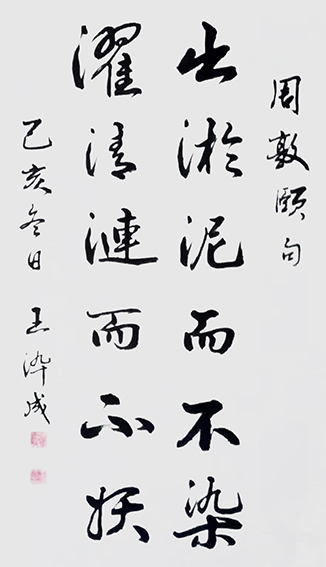 周敦頤句
出淤泥而不染
濯清漣而不妖
己亥冬日 王成